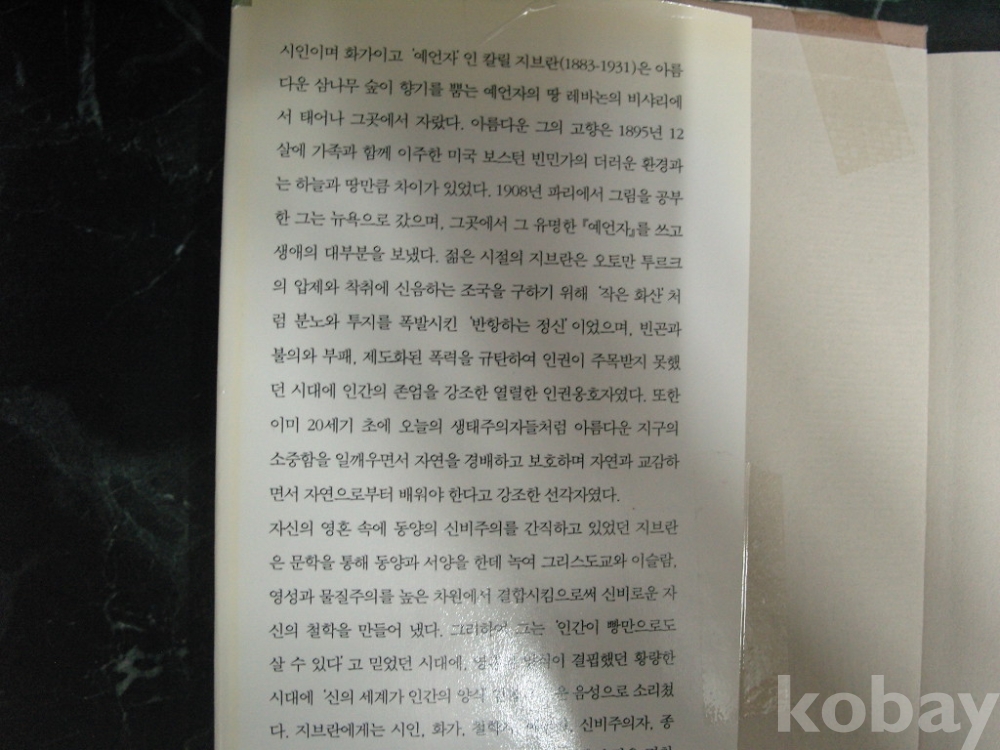 시인이며 화가이고 '예언자'인 칼릴 지브란(1883-1931)은 아름
다운 삼나무 숲이 향기를 뿜는 예언자의 땅 레바논의 비샤리에
서 태어나 그곳에서 자랐다. 아름다운 그의 고향은 1895년 12
살에 가족과 함께 이주한 미국 보스턴 빈민가의 더러운 환경과
는 하늘과 땅만큼 차이가 있었다. 1908년 파리에서 그림을 공부
한 그는 뉴욕으로 갔으며, 그곳에서 그 유명한 『예언자』를 쓰고
생애의 대부분을 보냈다. 젊은 시절의 지브란은 오토만 투르크
의 압제와 착취에 신음하는 조국을 구하기 위해 '작은 화산'처
럼 분노와 투지를 폭발시킨 '반항하는 정신'이었으며, 빈곤과
불의와 부패, 제도화된 폭력을 규탄하여 인권이 주목받지 못했
던 시대에 인간의 존엄을 강조한 열렬한 인권옹호자였다. 또한
이미 20세기 초에 오늘의 생태주의자들처럼 아름다운 지구의
소중함을 일깨우면서 자연을 경배하고 보호하며 자연과 교감하
면서 자연으로부터 배워야 한다고 강조한 선각자였다.
자신의 영혼 속에 동양의 신비주의를 간직하고 있었던 지브란
은 문학을 통해 동양과 서양을 한데 녹여 그리스도교와 이슬람,
영성과 물질주의를 높은 차원에서 결합시킴으로써 신비로운 자
신의 철학을 만들어 냈다. 그리하여 그는 '인간이 빵만으로도
살 수 있다'고 믿었던 시대에, 결핍했던 황량한
시대에 '신의 세계가 인간의 양식 음성으로 소리쳤
다. 지브란에게는 시인, 화가, 신비주의자, 종
kobay